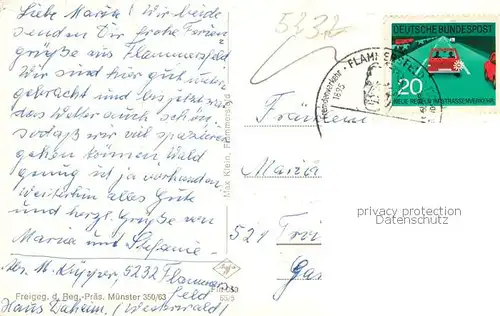 Liebe Maria! Wir beide
senden Dir frohe Ferien-
grüße aus Flammersfeld
Wir sind hier gut unter-
gebracht und bis jetzt war
das Wetter auch schön,
sodaß wir viel spazieren
gehen können. Wald
genug ist ja vorhanden
Weiterhin alles Gute
und herzl. Grüße von
Maria und Stefanie
Abs. M. Küpper, 5232 Flammers-
feld
Haus Daheim, (Westerwald)
Freigeg. d. Reg.-Präs. Münster 350/63
Max Klein, Flammersfeld
Agfa
5232
FLAMMERSFELD
DEUTSCHE BUNDESPOST
20
NEUE REGELN IM STRASSENVERKEHR
Fräulein
Maria
521 Troi
privacy protection